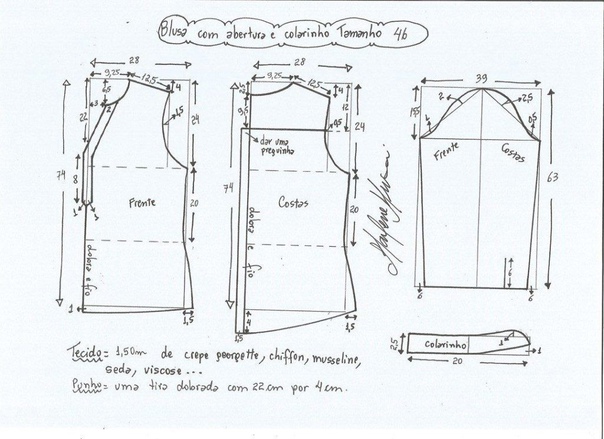 Blusa com abertura e colarinho Tamanho 46
28
9,25
12,5
4
6,5
3
2
22
1,5
24
8
74
1
1
Frente
20
dobra e fio
1
1,5
28
9,25
12,5
2,5
4
9,5
12
0,5
24
dar uma preguinha
74
Costas
20
dobra e fio
4
1,5
39
15,5
2
2,5
1
0,5
Frente
Costas
63
6
6
6
2,5
colarinho
1
1
20
Tecido = 1,50m de crepe georgette, chiffon, musseline,
seda, viscose ...
Punho = uma tira dobrada com 22 cm por 4 cm.